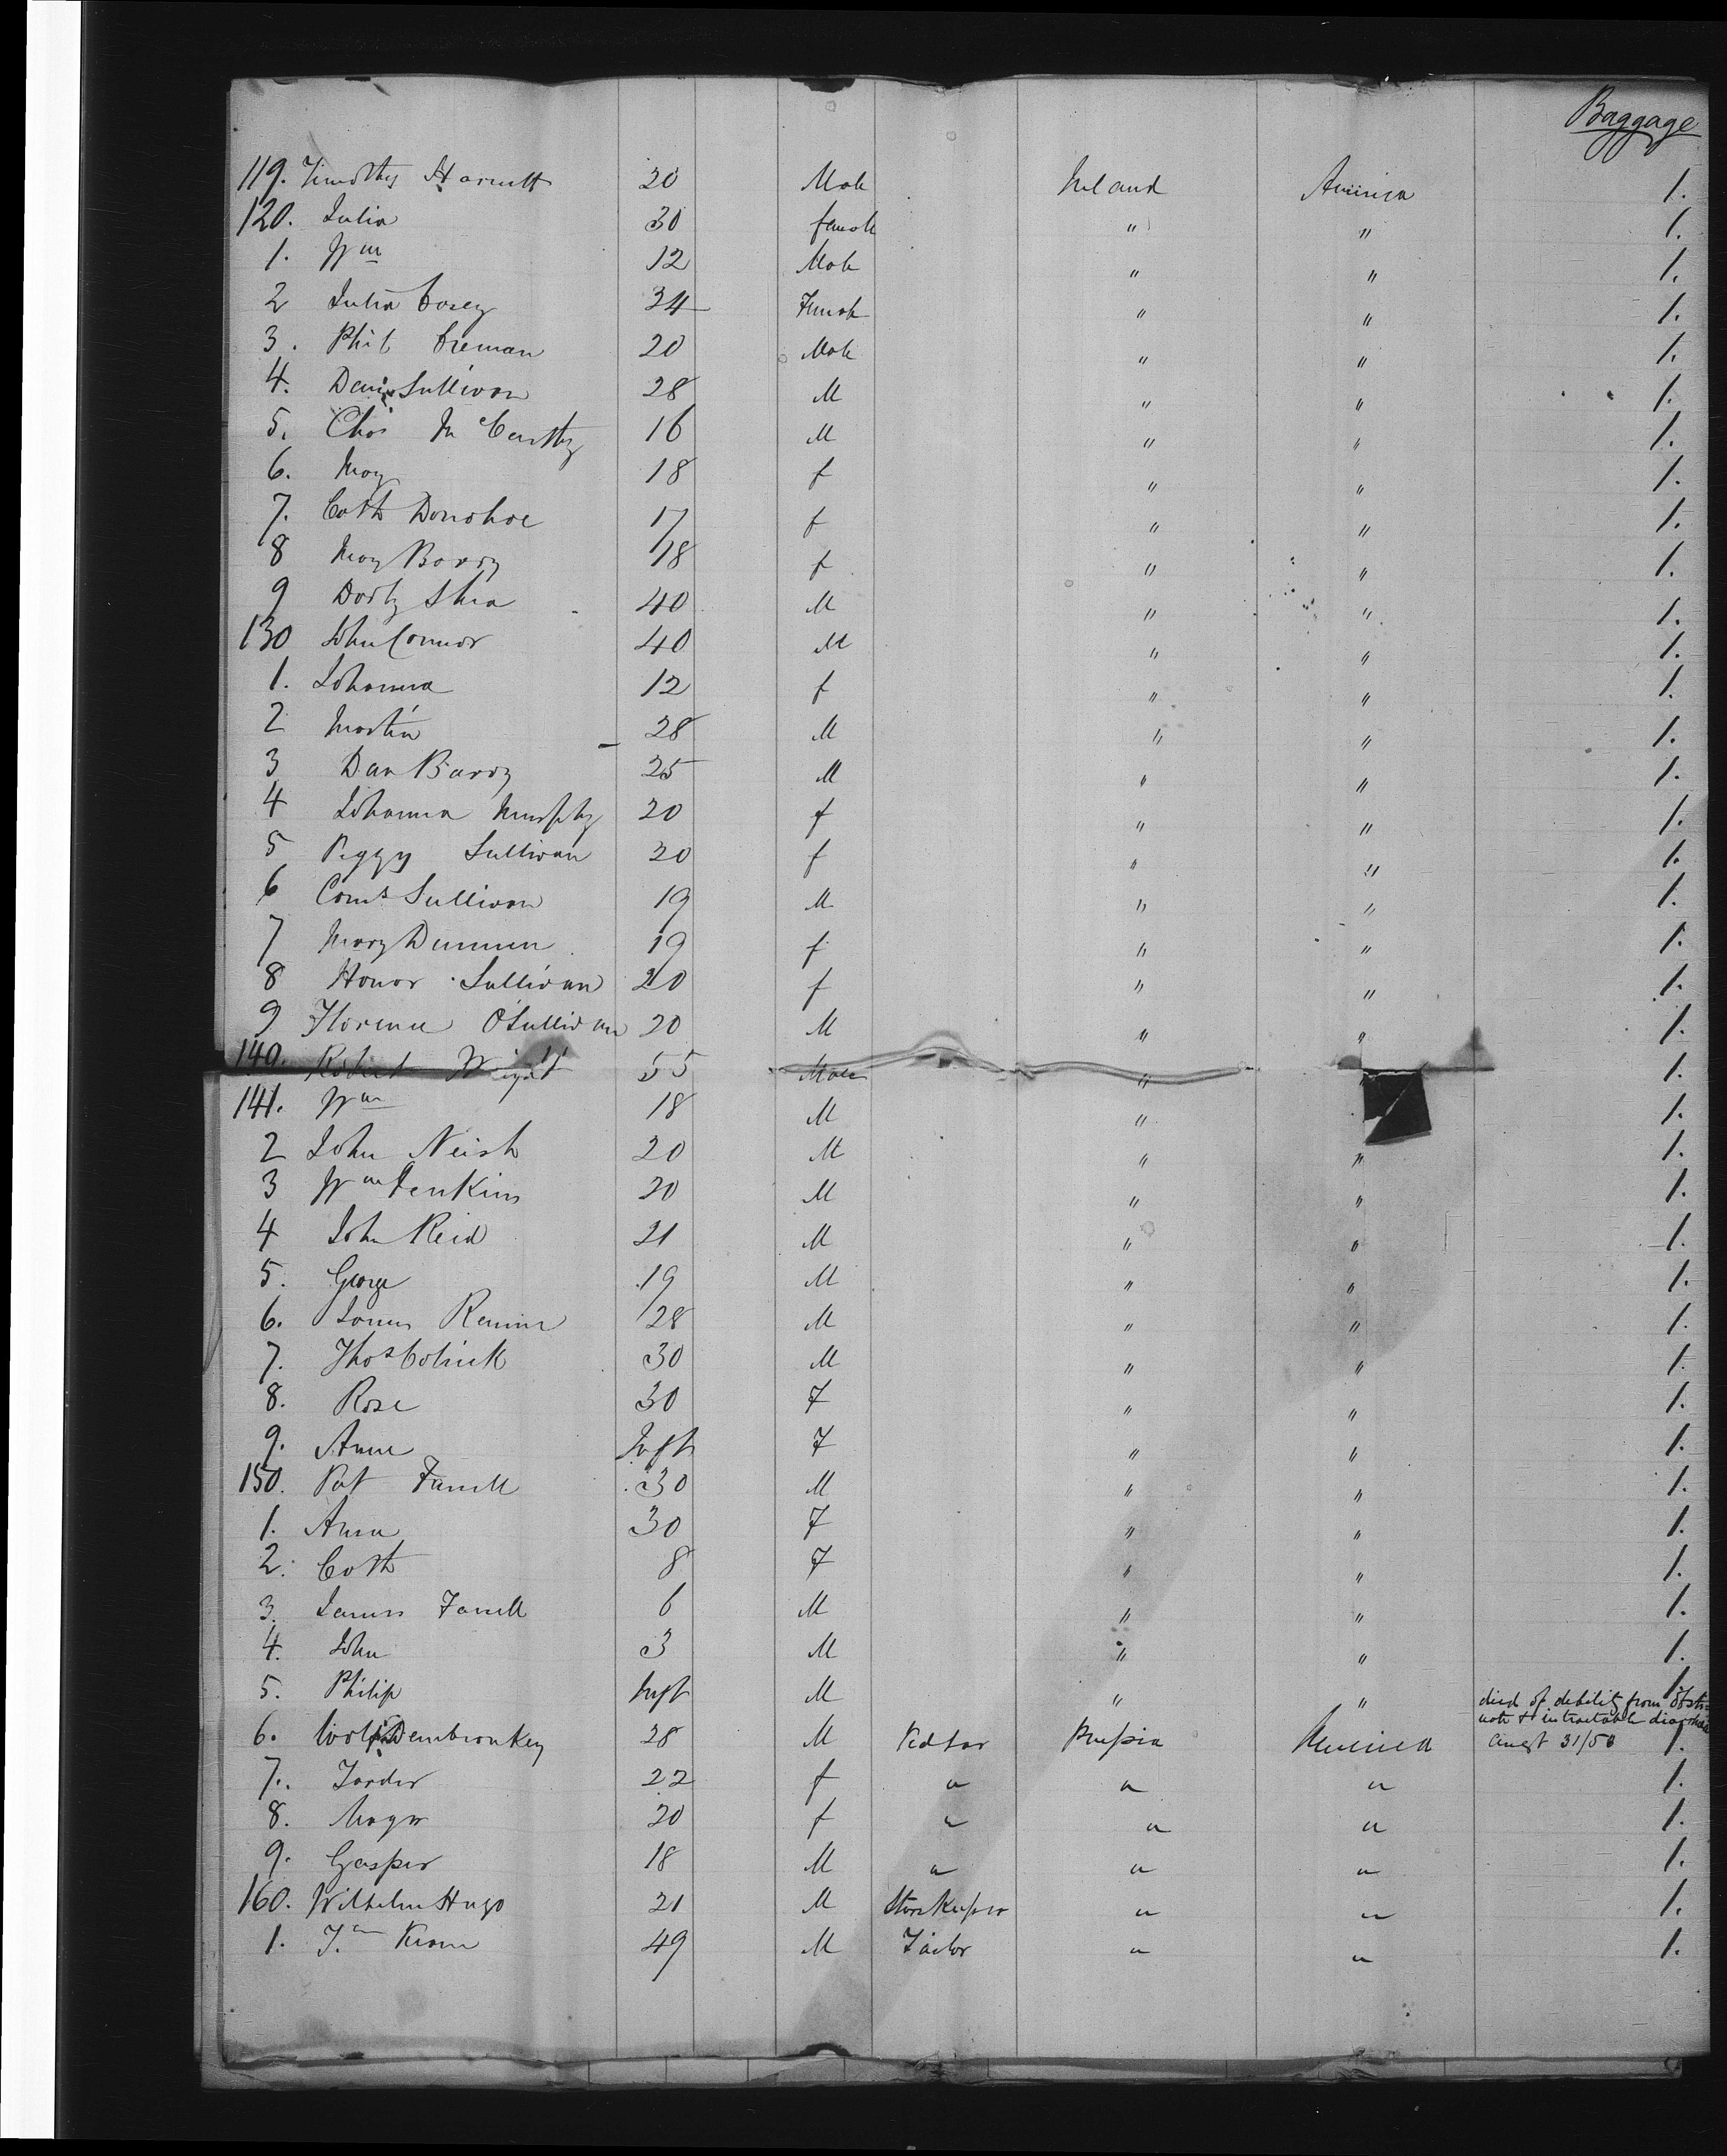 Baggage
119. Timothy Harnett 30 Male Ireland America 1.
120. Julia 30 female " " 1.
1. Wm 12 Male " " 1.
2 Julia Casey 34 Female " " 1.
3. Phil Creman 20 Male " " 1.
4. Denis Sullivan 28 M " " 1.
5. Chas McCarthy 16 M " " 1.
6. May 18 f " " 1.
7. Cath Donohoe 17 f " " 1.
8 May Barry 18 f " " 1.
9 Darby Shea 40 M " " 1.
130 John Connor 40 M " " 1.
1. Johanna 12 f " " 1.
2 Martin 28 M " " 1.
3 Dan Barry 25 M " " 1.
4 Johanna Murphy 20 f " " 1.
5 Peggy Sullivan 20 f " " 1.
6 Corns Sullivan 19 M " " 1.
7 Mary 19 f " " 1.
8 Honor Sullivan 20 f " " 1.
9 Florence O'Sullivan 20 M " " 1.
140. Robert Wright 55 Male " " 1.
141. Wm 18 M " 1.
2 John Neish 20 M " " 1.
3 Wm Jenkins 20 M " " 1.
4 John Reid 21 M " " 1.
5. George 19 M " " 1.
6. James 28 M " " 1.
7. Thos 30 M " " 1.
8. Rose 30 F " " 1.
9. Anne Inft F " " 1.
150. Pat Farrell 30 M " " 1.
1. Anne 30 F " " 1.
2. Cath 8 F " " 1.
3. James Farrell 6 M " " 1.
4. John 3 M " " 1.
5. Philip Inft M " " 1.
died of debility from obsti-
nate & intractable diarrhoea
Augst 31/50
6. 28 M Prussia America 1.
7. 22 f " " " 1.
8. 20 f " " " 1.
9. Gasper 18 M " " " 1.
160. Wilhelm Hugo 21 M Storekeeper " " 1.
1. 49 M Tailor " " 1.